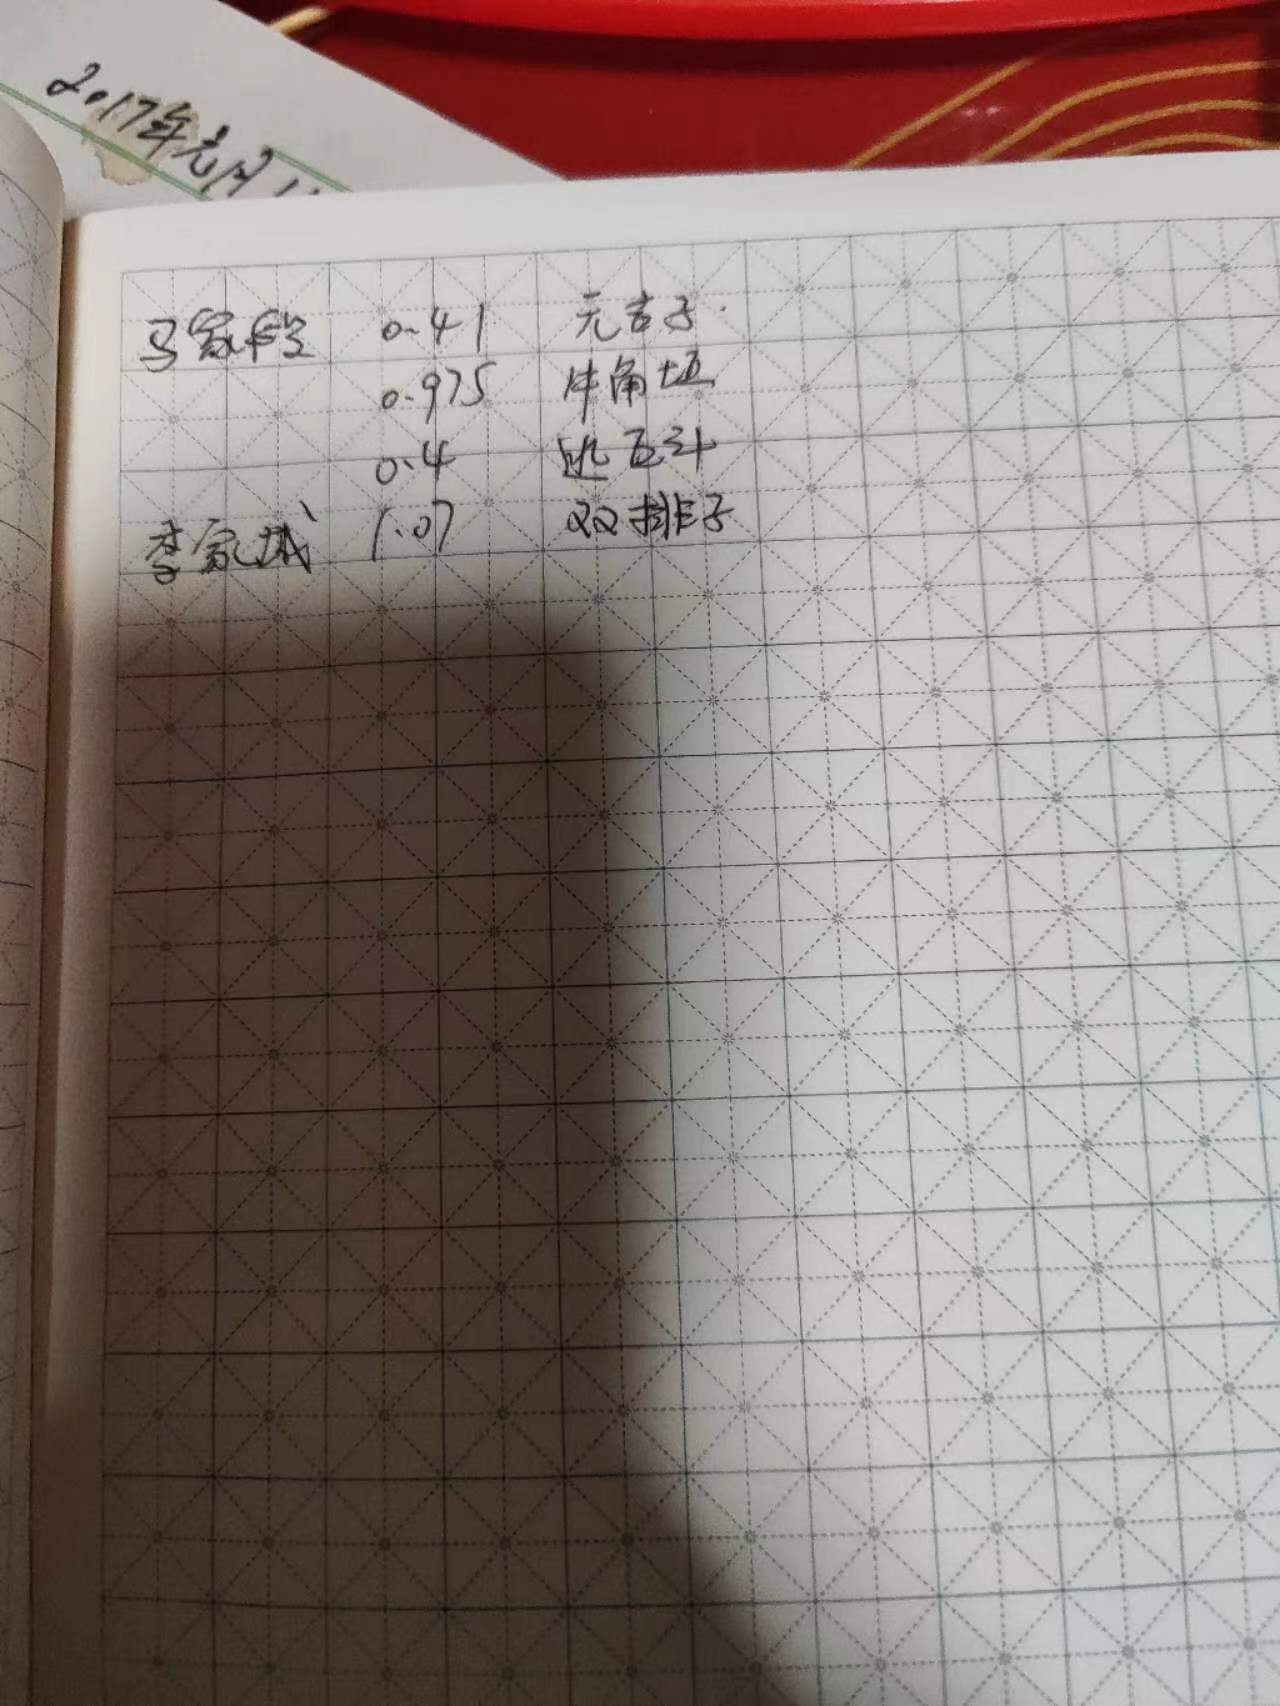 2017年元月11
马家 0.41 元古子
0.975 牛角垣
0.4 斗
李家城 1.07 双排子